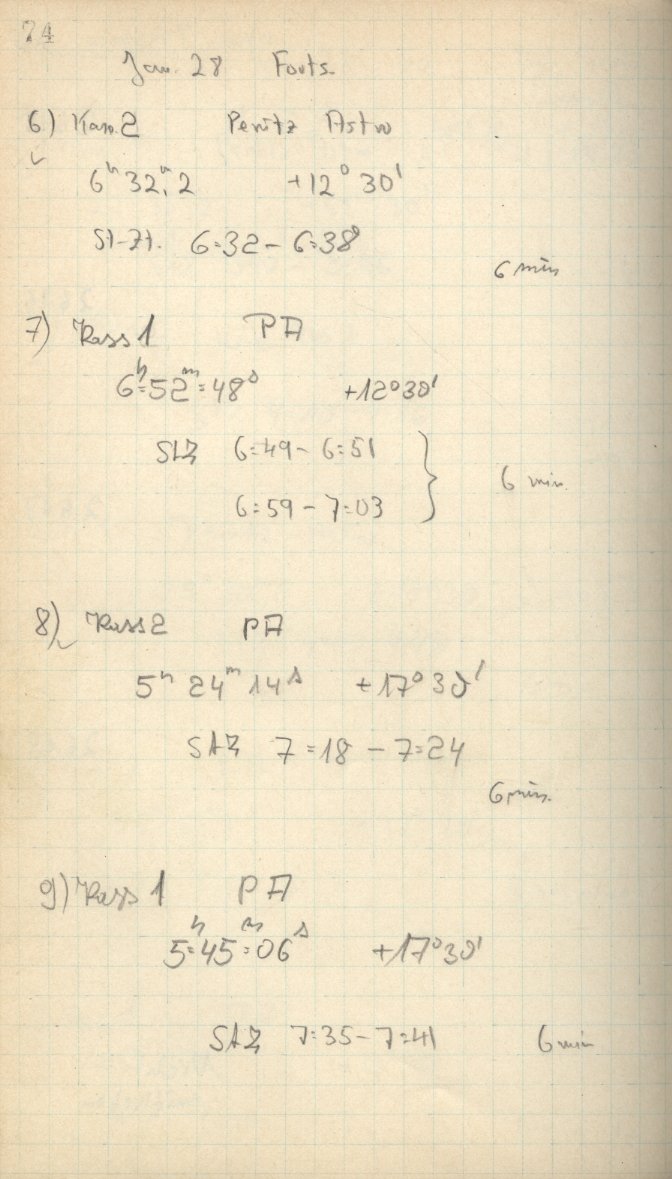 74
Jan. 28 Forts.
6) Kass. 2 Perutz Astro
6h 32m,2 +12° 30'
St-Zt. 6:32 - 6:38
6 min
7) Kass 1 PA
6h:52m:48s +12°30'
StZ 6:49 - 6:51
6:59 - 7:03
6 min.
8) Kass 2 PA
5h 24m 14s +17° 30'
StZ 7:18 - 7:24
6 min.
9) Kass 1 PA
5h:45m:06s +17°30'
StZ 7:35 - 7:41
6 min